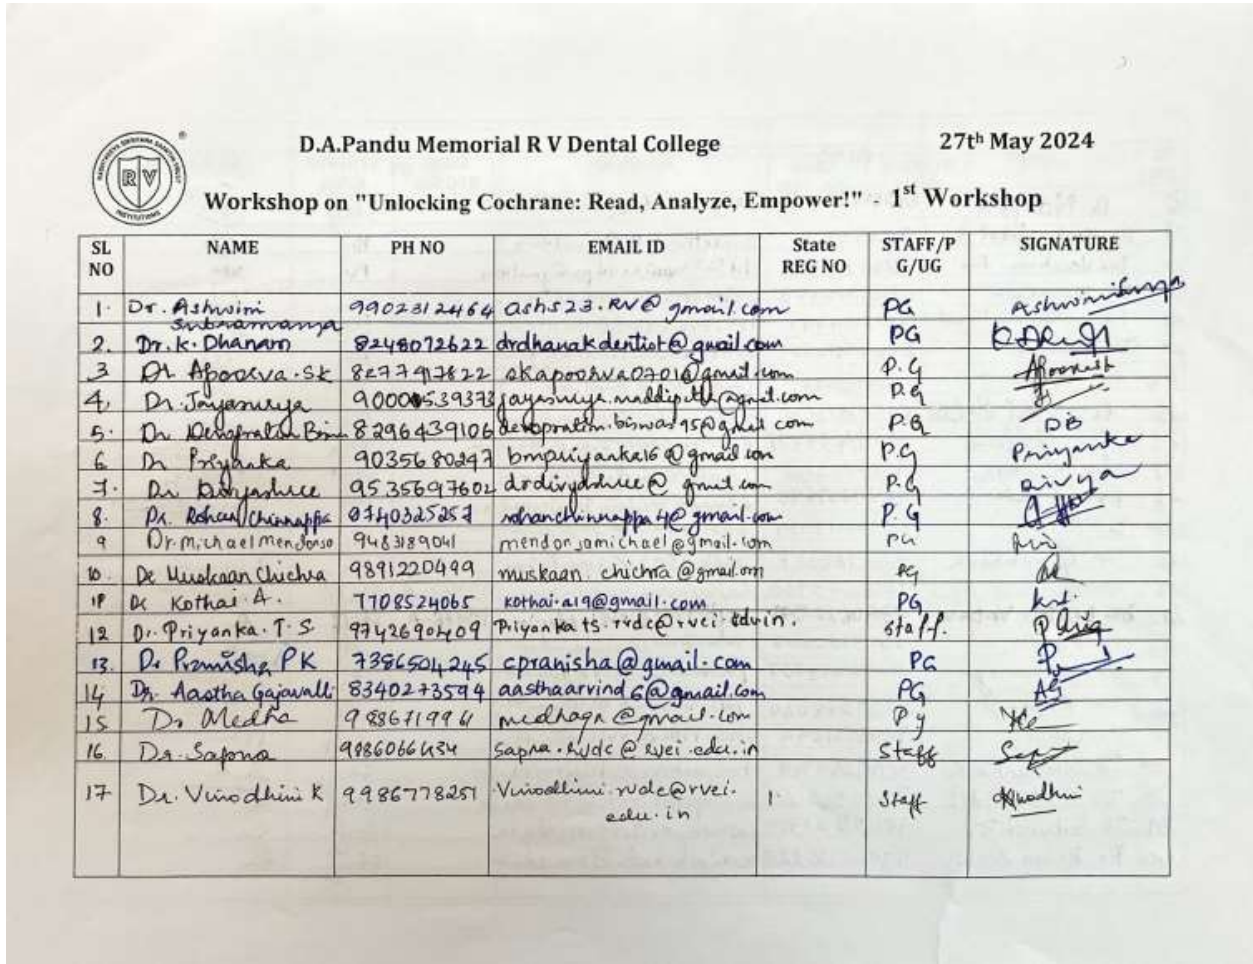 D.A.Pandu Memorial R V Dental College 27th May 2024
RV
INSTITUTIONS
Workshop on "Unlocking Cochrane: Read, Analyze, Empower!" - 1st Workshop
SL NO NAME PH NO EMAIL ID State REG NO STAFF/P G/UG SIGNATURE
1. Dr. Ashwini Subramanya 9902312464 ashs23.RV@gmail.com PG
2. Dr. K. Dhanam 8248072622 drdhanakdentist@gmail.com PG
3 Dr Apoorva.SK 8277917822 skapoorva0701@gmail.com P.G
4, Dr. Jayasurya jayasurya.maddipatla@gmail.com P.G
5. Dr 8296439106 debopratim.biswas95@gmail com P.G DB
6 Dr Priyanka 9035680247 bmpriyanka16@gmail com P.G Priyanka
7. Dr Divyashree 9535697602 drdivyashree@gmail.com P.G Divya
8. Dr. Rohan Chinnappa rohanchinnappa4@gmail.com P.G
9 Dr. Michael Mendonso 9483189041 mendonsamichael@gmail.com PG
10. Dr Muskaan Chichra 9891220499 muskaan.chichra@gmail.com PG
Dr Kothai.A. 7708524065 kothai.a19@gmail.com PG
12 Dr. Priyanka.T.S 9742690409 Priyankats.rvdc@rvei.edu.in. staff.
13. Dr Pranisha PK 7386504245 cpranisha@gmail.com PG
14 Dr. Aastha Gajavalli 8340273594 aasthaarvind6@gmail.com PG AG
15 Dr Medha medhagn@gmail.com Pg
16. Dr. Sapna Sapna.rvdc@rvei.edu.in Staff
17 Dr. Vinodhini K 9986778251 Vinodhini.rvdc@rvei. Staff
edu.in